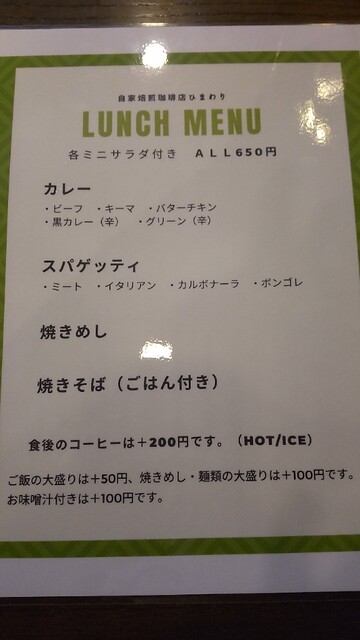 自家焙煎珈琲店ひまわり
LUNCH MENU
各ミニサラダ付き ALL650円
カレー
・ビーフ ・キーマ ・バターチキン
・黒カレー（辛） ・グリーン（辛）
スパゲッティ
・ミート ・イタリアン ・カルボナーラ ・ボンゴレ
焼きめし
焼きそば（ごはん付き）
食後のコーヒーは＋200円です。（HOT/ICE）
ご飯の大盛りは＋50円、焼きめし・麺類の大盛りは＋100円です。
お味噌汁付きは＋100円です。